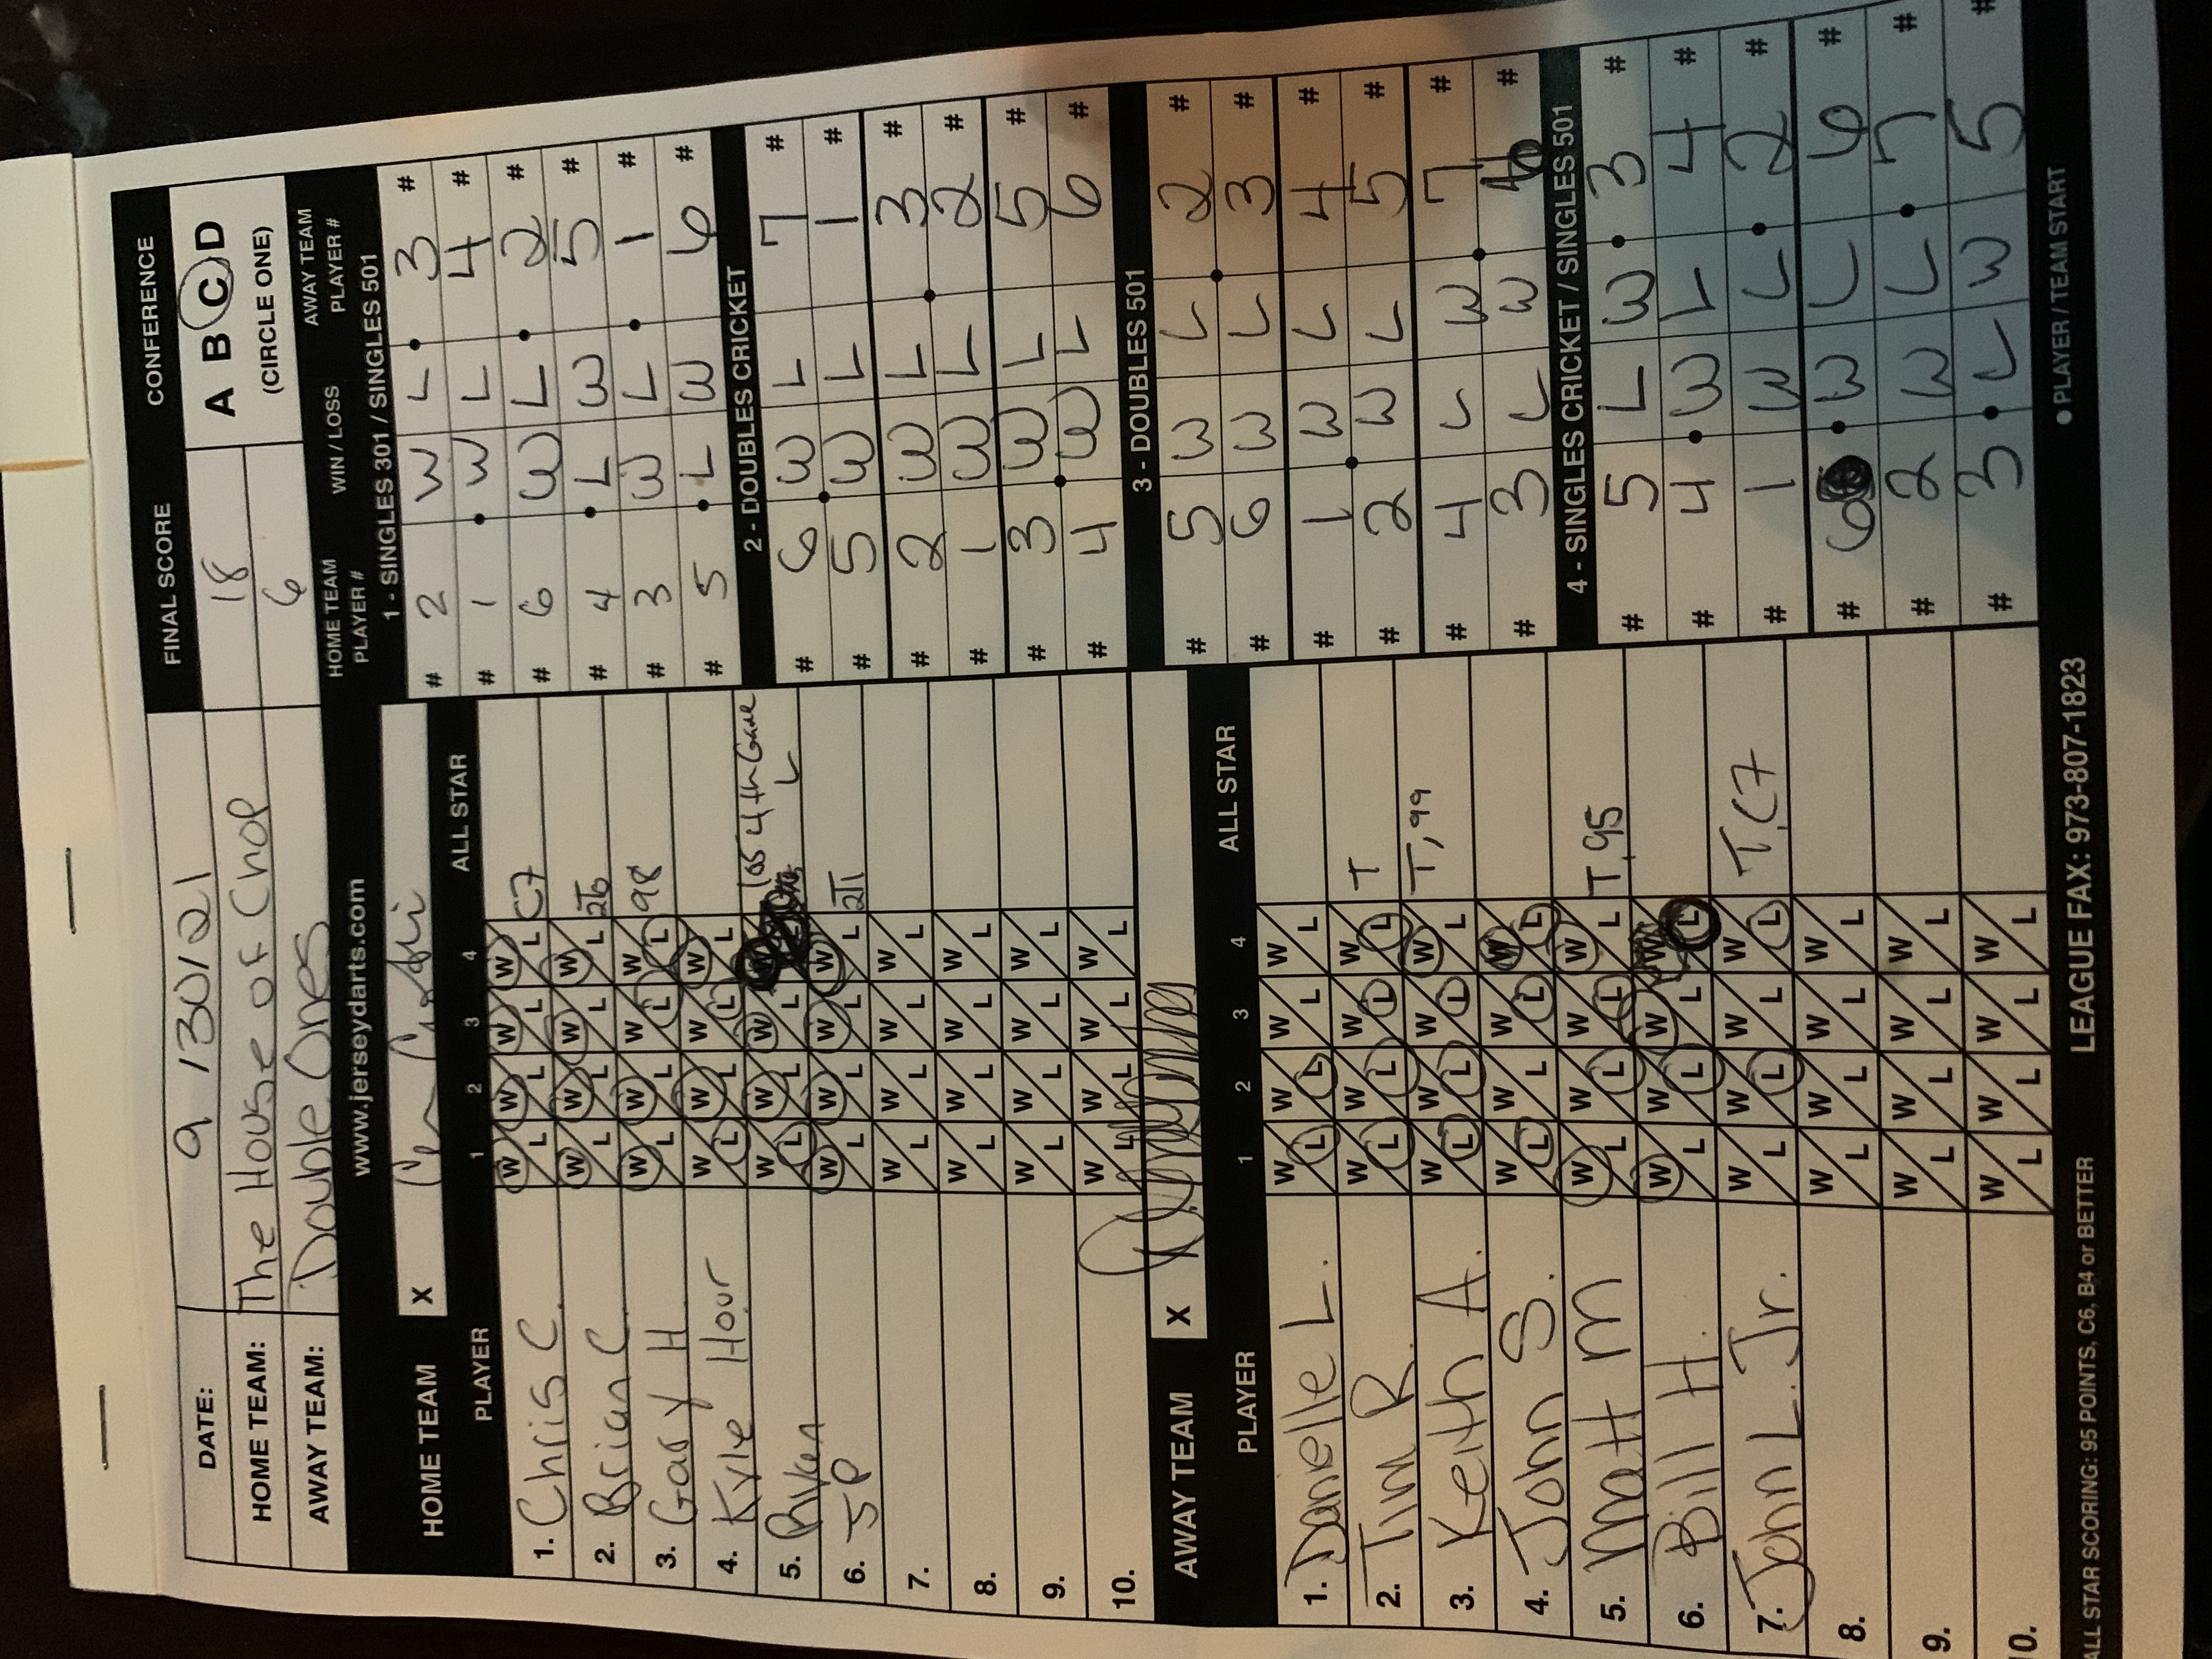 DATE: 9 / 30 / 21 FINAL SCORE CONFERENCE
HOME TEAM: The House of Chop 18 A B C D
AWAY TEAM: Double Ones 6 (CIRCLE ONE)
www.jerseydarts.com
HOME TEAM X
PLAYER 1 2 3 4 ALL STAR
1. Chris C. W L W L W L W L C7
2. Brian C. W L W L W L W L
3. Gary H W L W L W L W L 98
4. Kyle Hour W L W L W L W L
5. W L W L W L L 4th Game L
6. JP W L W L W L W L
7. W L W L W L W L
8. W L W L W L W L
9. W L W L W L W L
10. W L W L W L W L
AWAY TEAM X
PLAYER 1 2 3 4 ALL STAR
1. Danielle L. W L W L W L W L
2. Tim R. W L W L W L W L T
3. Keith A. W L W L W L W L T, 99
4. John S. W L W L W L W L
5. Matt M W L W L W L W L T, 95
6. Bill H. W L W L W L W L
7. John L. Jr. W L W L W L W L T, C7
8. W L W L W L W L
9. W L W L W L W L
10. W L W L W L W L
HOME TEAM PLAYER # WIN / LOSS AWAY TEAM PLAYER #
1 - SINGLES 301 / SINGLES 501
# 2 W L 3 #
# 1 W L 4 #
# 6 W L 2 #
# 4 L W 5 #
# 3 W L 1 #
# 5 L W 6 #
2 - DOUBLES CRICKET
# 6 W L 7 #
# 5 W L 1 #
# 2 W L 3 #
# 1 W L 2 #
# 3 W L 5 #
# 4 W L 6 #
3 - DOUBLES 501
# 5 W L 2 #
# 6 W L 3 #
# 1 W L 4 #
# 2 W L 5 #
# 4 L W 7 #
# 3 L W 6 #
4 - SINGLES CRICKET / SINGLES 501
# 5 L W 3 #
# 4 W L 4 #
# 1 W L 2 #
# 6 W L 6 #
# 2 W L 7 #
# 3 L W 5 #
ALL STAR SCORING: 95 POINTS, C6, B4 or BETTER LEAGUE FAX: 973-807-1823 ● PLAYER / TEAM START